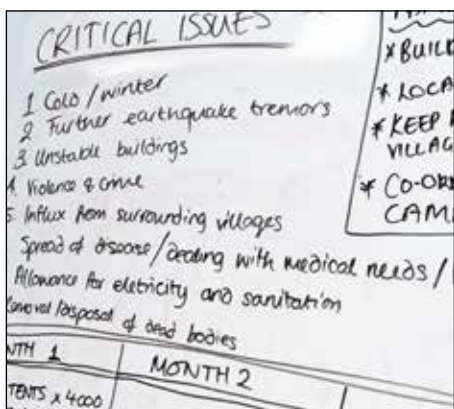 CRITICAL ISSUES
1 Cold/winter
2 Further earthquake tremors
3 Unstable buildings
4. Violence & crime
5. Influx from surrounding villages
Spread of disease/dealing with medical needs/
Allowance for eletricity and sanitation
disposal of dead bodies
* BUILD
* LOCA
* KEEP
VILLAG
* CO-ORD
CAM
NTH 1
MONTH 2
TENTS x 4000